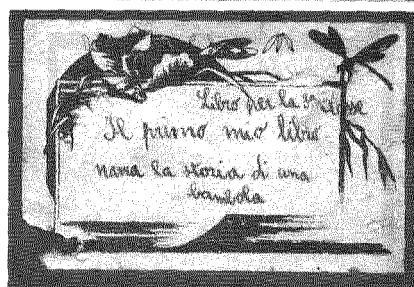 Libro per la
Il primo mio libro
narra la storia di una
bambola